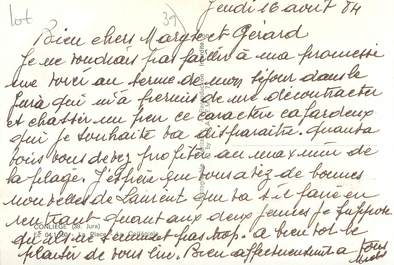 lot
39
Jeudi 16 août 84
Bien chers Maryse et Gérard
Je ne voudrais pas faillir à ma promesse
me voici au terme de mon séjour dans le
Jura qui m'a permis de me décontracter
et chasser un peu ce caractère cafardeux
qui je souhaite va disparaître. quant à
vous vous devez profiter au maximum de
la plage. J'espère que vous avez de bonnes
nouvelles de Laurent que va t'il faire en
rentrant quant aux deux jeunes je suppose
qu'ils ne s'ennuient pas trop. à bientôt le
CONLIEGE (39. Jura)
plaisir de vous lire. Bien affectueusement à vous